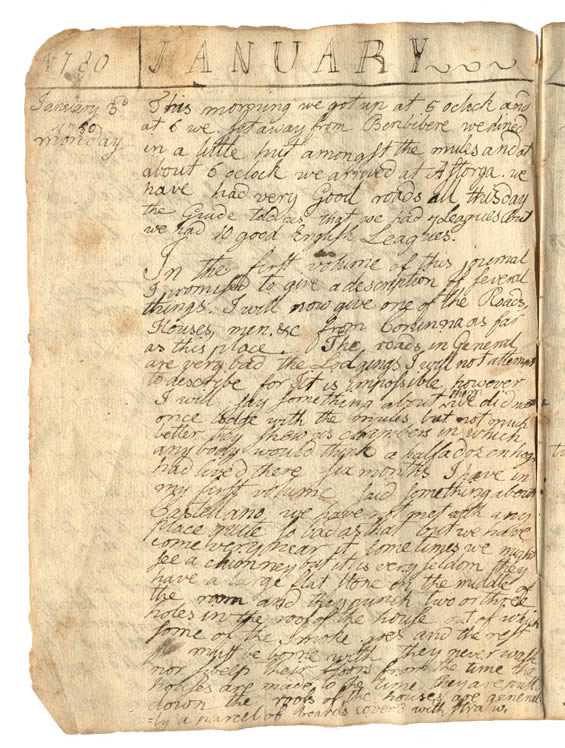 1780 JANUARY
January 3d
1780
monday
This morning we got up at 5 oclock and
at 6 we set away from Benbibere we dined
in a little hut amongst the mules and at
about 6 oclock we arrived at Astorga. we
have had very Good roads all this day
the Guide told us that we had 7 Leagues but
we had 10 good English Leagues.
In the first volume of this journal
I promised to give a description of several
things. I will now give one of the Roads,
Houses, men. &c from Corunna as far
as this place. The roads in General
are very bad the Lodgings I will not attempt
to describe for it is impossible however
I will say something about them we did not
once lodge with the mules but not much
better they show us chambers in which
any body would think a half a dozen hogs
had lived there six months I have in
my first volume said something about
Castellano we have not met with any
place quite so bad as that but we have
come very near it sometimes we might
see a chimney but it is very seldom they
have a large flat stone in the middle of
the room and they punch two or three
holes in the roof of the house out of which
some of the smoke goes and the rest
must be borne with they never wash
nor sweep their floors from the time the
houses are made to the time they are pulled
down the roofs of the houses are general
=ly a parcel of boards cover'd with straw.